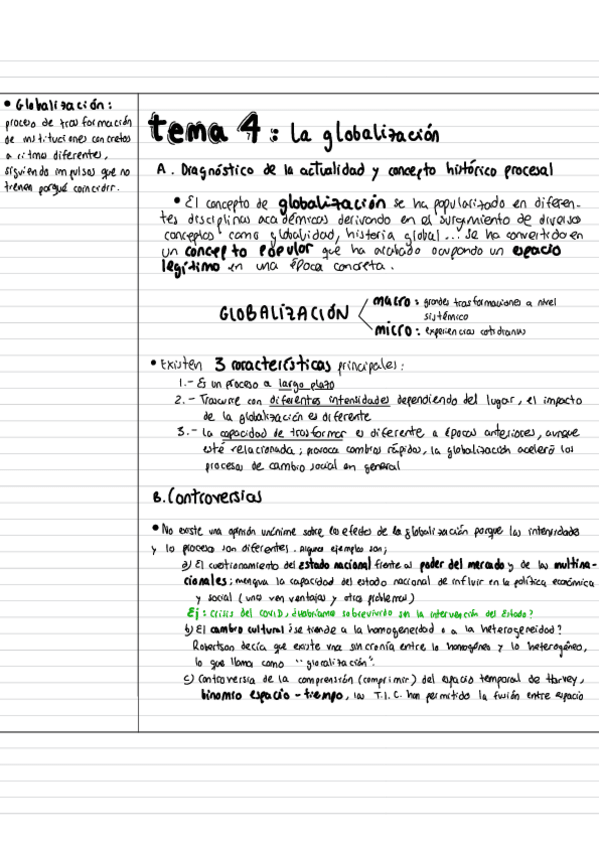 • Globalización:
proceso de trasformación
de instituciones concretas
a ritmo diferentes,
siguiendo impulsos que no
tienen porqué coincidir.
tema 4: La globalización
A. Diagnóstico de la actualidad y concepto histórico procesal
• El concepto de globalización se ha popularizado en diferen-
tes disciplinas académicas derivando en el surgimiento de diversos
conceptos como globalidad, historia global... se ha convertido en
un concepto popular que ha acabado ocupando un espacio
legítimo en una época concreta.
GLOBALIZACIÓN
macro: grandes trasformaciones a nivel
sistémico
micro: experiencias cotidianas
• Existen 3 características principales:
1.- Es un proceso a largo plazo
2.- Trascurre con diferentes intensidades dependiendo del lugar, el impacto
de la globalización es diferente
3.- La capacidad de trasformar es diferente a épocas anteriores, aunque
esté relacionada; provoca cambios rápidos, la globalización aceleró los
procesos de cambio social en general
B. Controversias
• No existe una opinión unánime sobre los efectos de la globalización porque las intensidades
y los procesos son diferentes. Algunos ejemplos son;
a) El cuestionamiento del estado nacional frente al poder del mercado y de las multina-
cionales; mengua la capacidad del estado nacional de influir en la política económica
y social (uno ven ventajas y otros problemas)
Ej: Crisis del COVID, ¿habríamos sobrevivido sin la intervención del Estado?
b) El cambio cultural ¿se tiende a la homogeneidad o a la heterogeneidad?
Robertson decía que existe una sincronía entre lo homogéneo y lo heterogéneo,
lo que llama como "glocalización".
c) Controversia de la comprensión (comprimir) del espacio temporal de Harvey,
binomio espacio-tiempo, las T.I.C. han permitido la fusión entre espacio